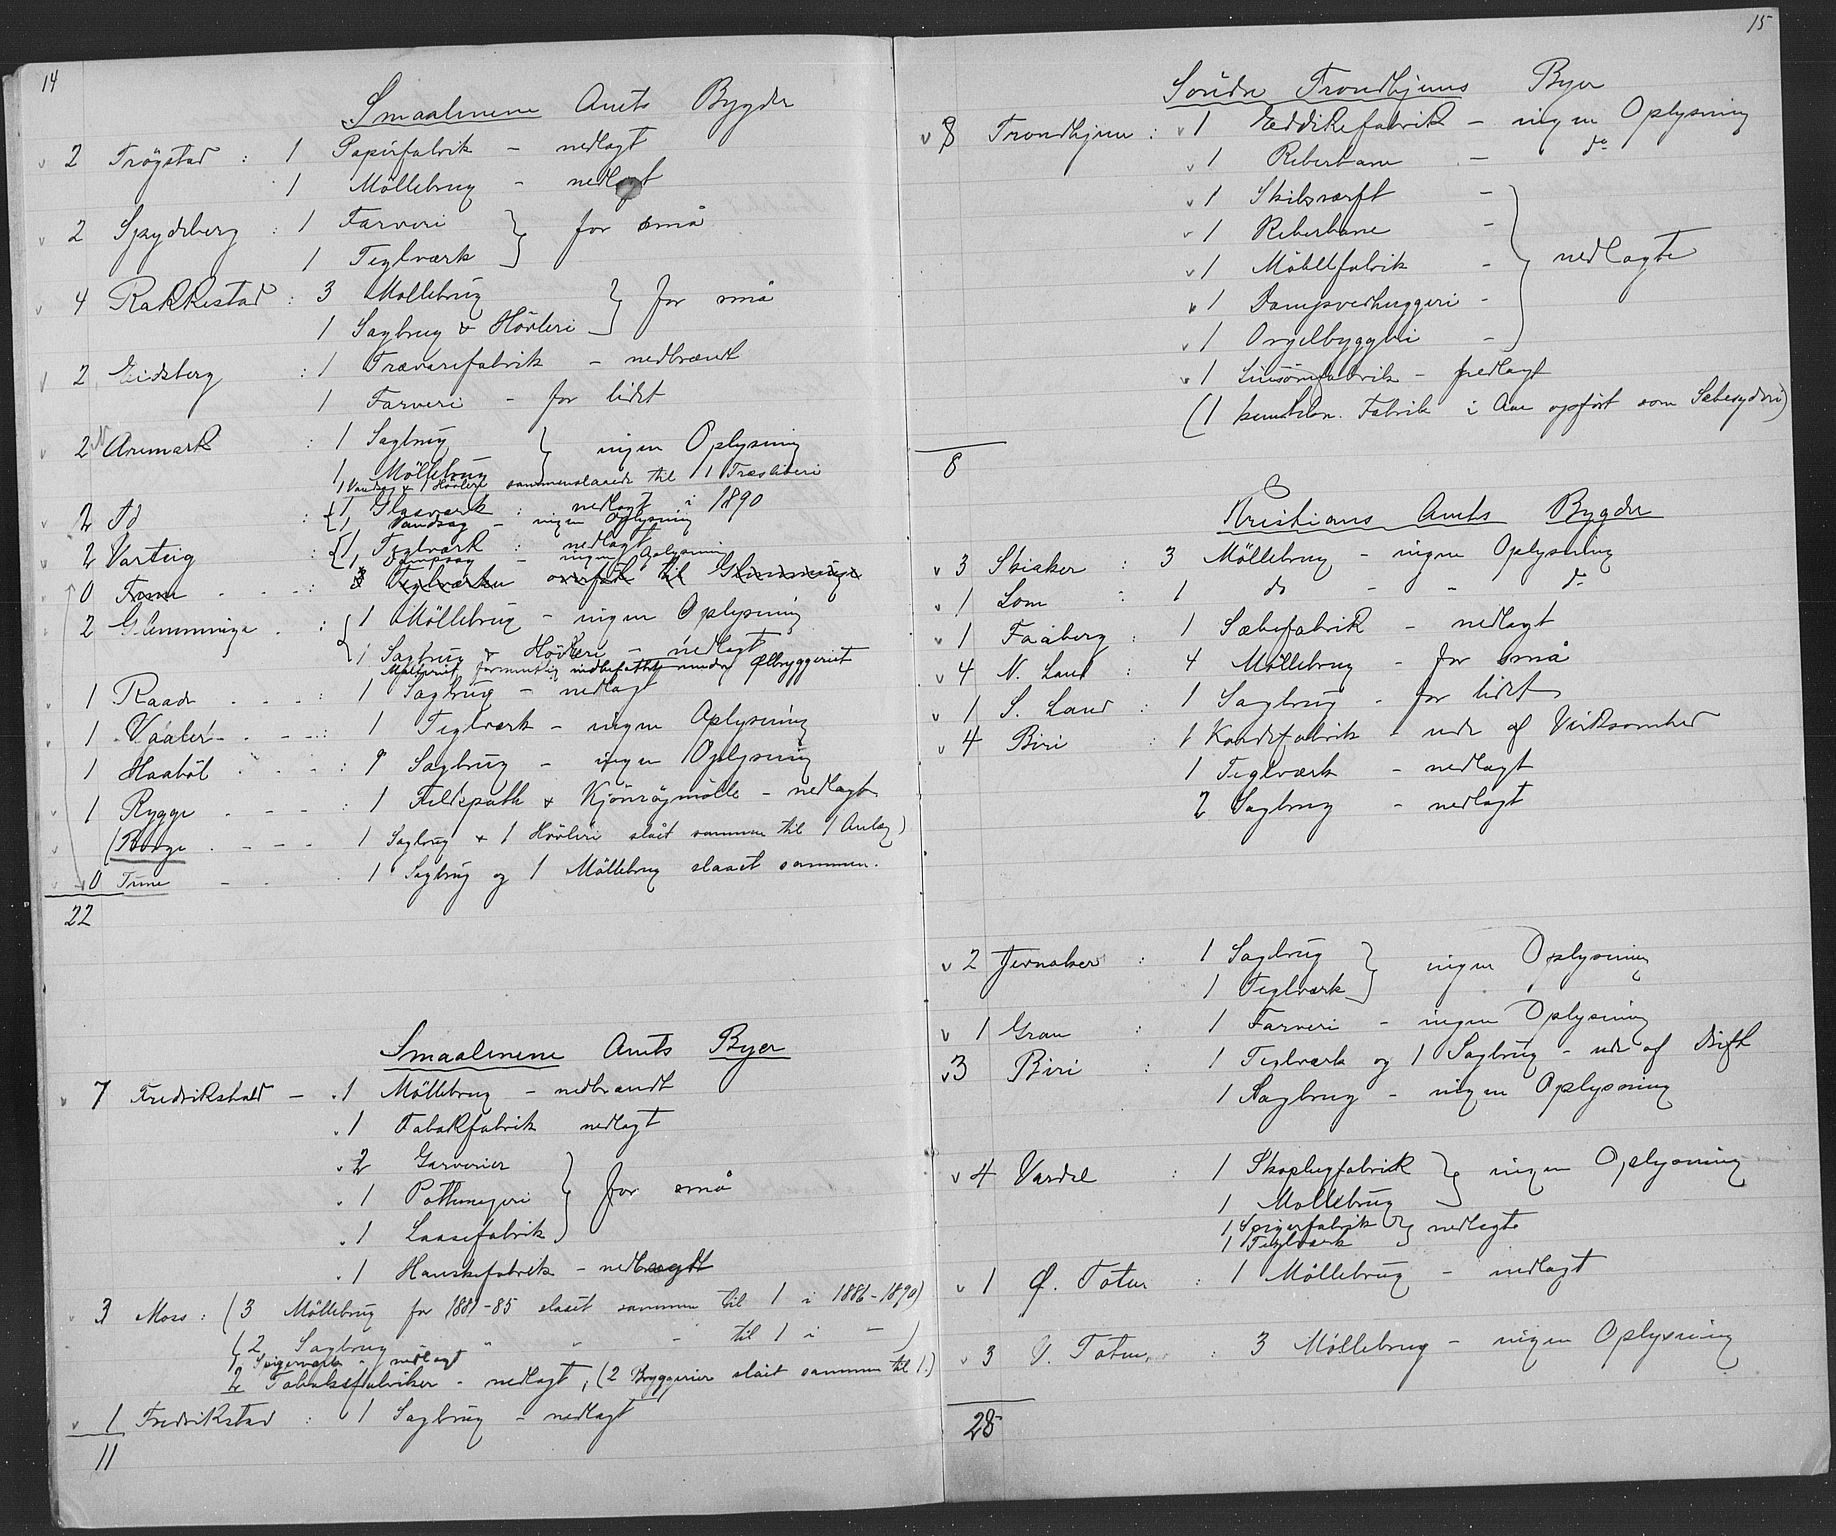 14
Smaalenene Amts Bygder
v 2 Trøgstad : 1 Papirfabrik – nedlagt
1 Möllebrug – nedlagt
v 2 Spydeberg : 1 Farveri } for små
1 Teglværk
v 4 Rakkestad : 3 Möllebrug } for små
1 Sagbrug & Hövleri
v 2 Eidsberg : 1 Trævarefabrik – nedbrændt
1 Farveri – for lidet
v 2 Aremark : 1 Sagbrug } ingen Oplysning
1 Möllebrug
1 Vandsag & 1 Hövleri sammenslaaede til 1 Træsliberi
v 2 Id : { 1 Glasværk : nedlagt i 1890
1 Vandsag – ingen Oplysning
v 2 Varteig : { 1 Teglværk : nedlagt
1 Dampsag – ingen Oplysning
v 0 Tune . . . : 3 Teglværker overført til Glemminge
2 Glemminge . : { 1 Möllebrug – ingen Oplysning
1 Sagbrug & Hövleri – nedlagt
Malteriet formentlig indbefattet under Ølbryggeriet
v 1 Raade . . . : 1 Sagbrug – nedlagt
v 1 Vaaler . . . : 1 Teglværk – ingen Oplysning
1 Haaböl . . . : 1 Sagbrug – ingen Oplysning
v 1 Rygge . . . : 1 Feldspath & Kjönrögmölle – nedlagt
v (Borge . . . . 1 Sagbrug & 1 Hövleri slåit sammen til 1 Anlæg)
0 Tune – . . 1 Sagbrug og 1 Möllebrug slaaet sammen.
22
Smaalenene Amts Byer
v 7 Fredrikshald – 1 Möllebrug – nedbrændt
1 Tabakfabrik nedlagt
2 Garverier } for små
1 Pottemageri
1 Laasefabrik
1 Hanskefabrik – nedlagt
v 3 Moss : (3 Möllebrug for 1881–85 slaaet sammen til 1 i 1886–1890)
(2 Sagbrug " " – til 1 i – )
1 Spigerværk – nedlagt
2 Tobaksfabriker – nedlagt, (2 Bryggerier slåit sammen til 1.)
v 1 Fredrikstad : 1 Sagbrug – nedlagt
11
15
Söndre Trondhjems Byer
v 8 Trondhjem : v 1 Eddikefabrik – ingen Oplysning
v 1 Reberbane – do
v 1 Skibsværft – } nedlagte
v 1 Reberbane –
v 1 Möbelfabrik –
v 1 Dampvedhuggeri –
v 1 Orgelbyggeri –
v 1 fabrik – nedlagt
(1 Fabrik i Aar opført som Sæbesyderi)
8
Kristians Amts Bygder
v 3 Skiaker : 3 Möllebrug – ingen Oplysning
v 1 Lom : 1 do – – do
v 1 Faaberg : 1 Sæbefabrik – nedlagt
v 4 N. Land : 4 Möllebrug – for små
v 1 S. Land : 1 Sagbrug – for lidet
v 4 Biri : 1 Kardefabrik – ude af Virksomhed
1 Teglværk – nedlagt
2 Sagbrug – nedlagt
v 2 Jevnaker : 1 Sagbrug } ingen Oplysning
1 Teglværk
v 1 Gran : 1 Farveri – ingen Oplysning
v 3 Biri : 1 Teglværk og 1 Sagbrug – ude af Drift
1 Sagbrug – ingen Oplysning
v 4 Vardal : 1 Skoplugfabrik } ingen Oplysning
1 Möllebrug
1 Spigerfabrik } nedlagte
1 Teglværk
v 1 Ø. Toten : 1 Möllebrug – nedlagt
v 3 V. Toten : 3 Möllebrug – ingen Oplysning
28